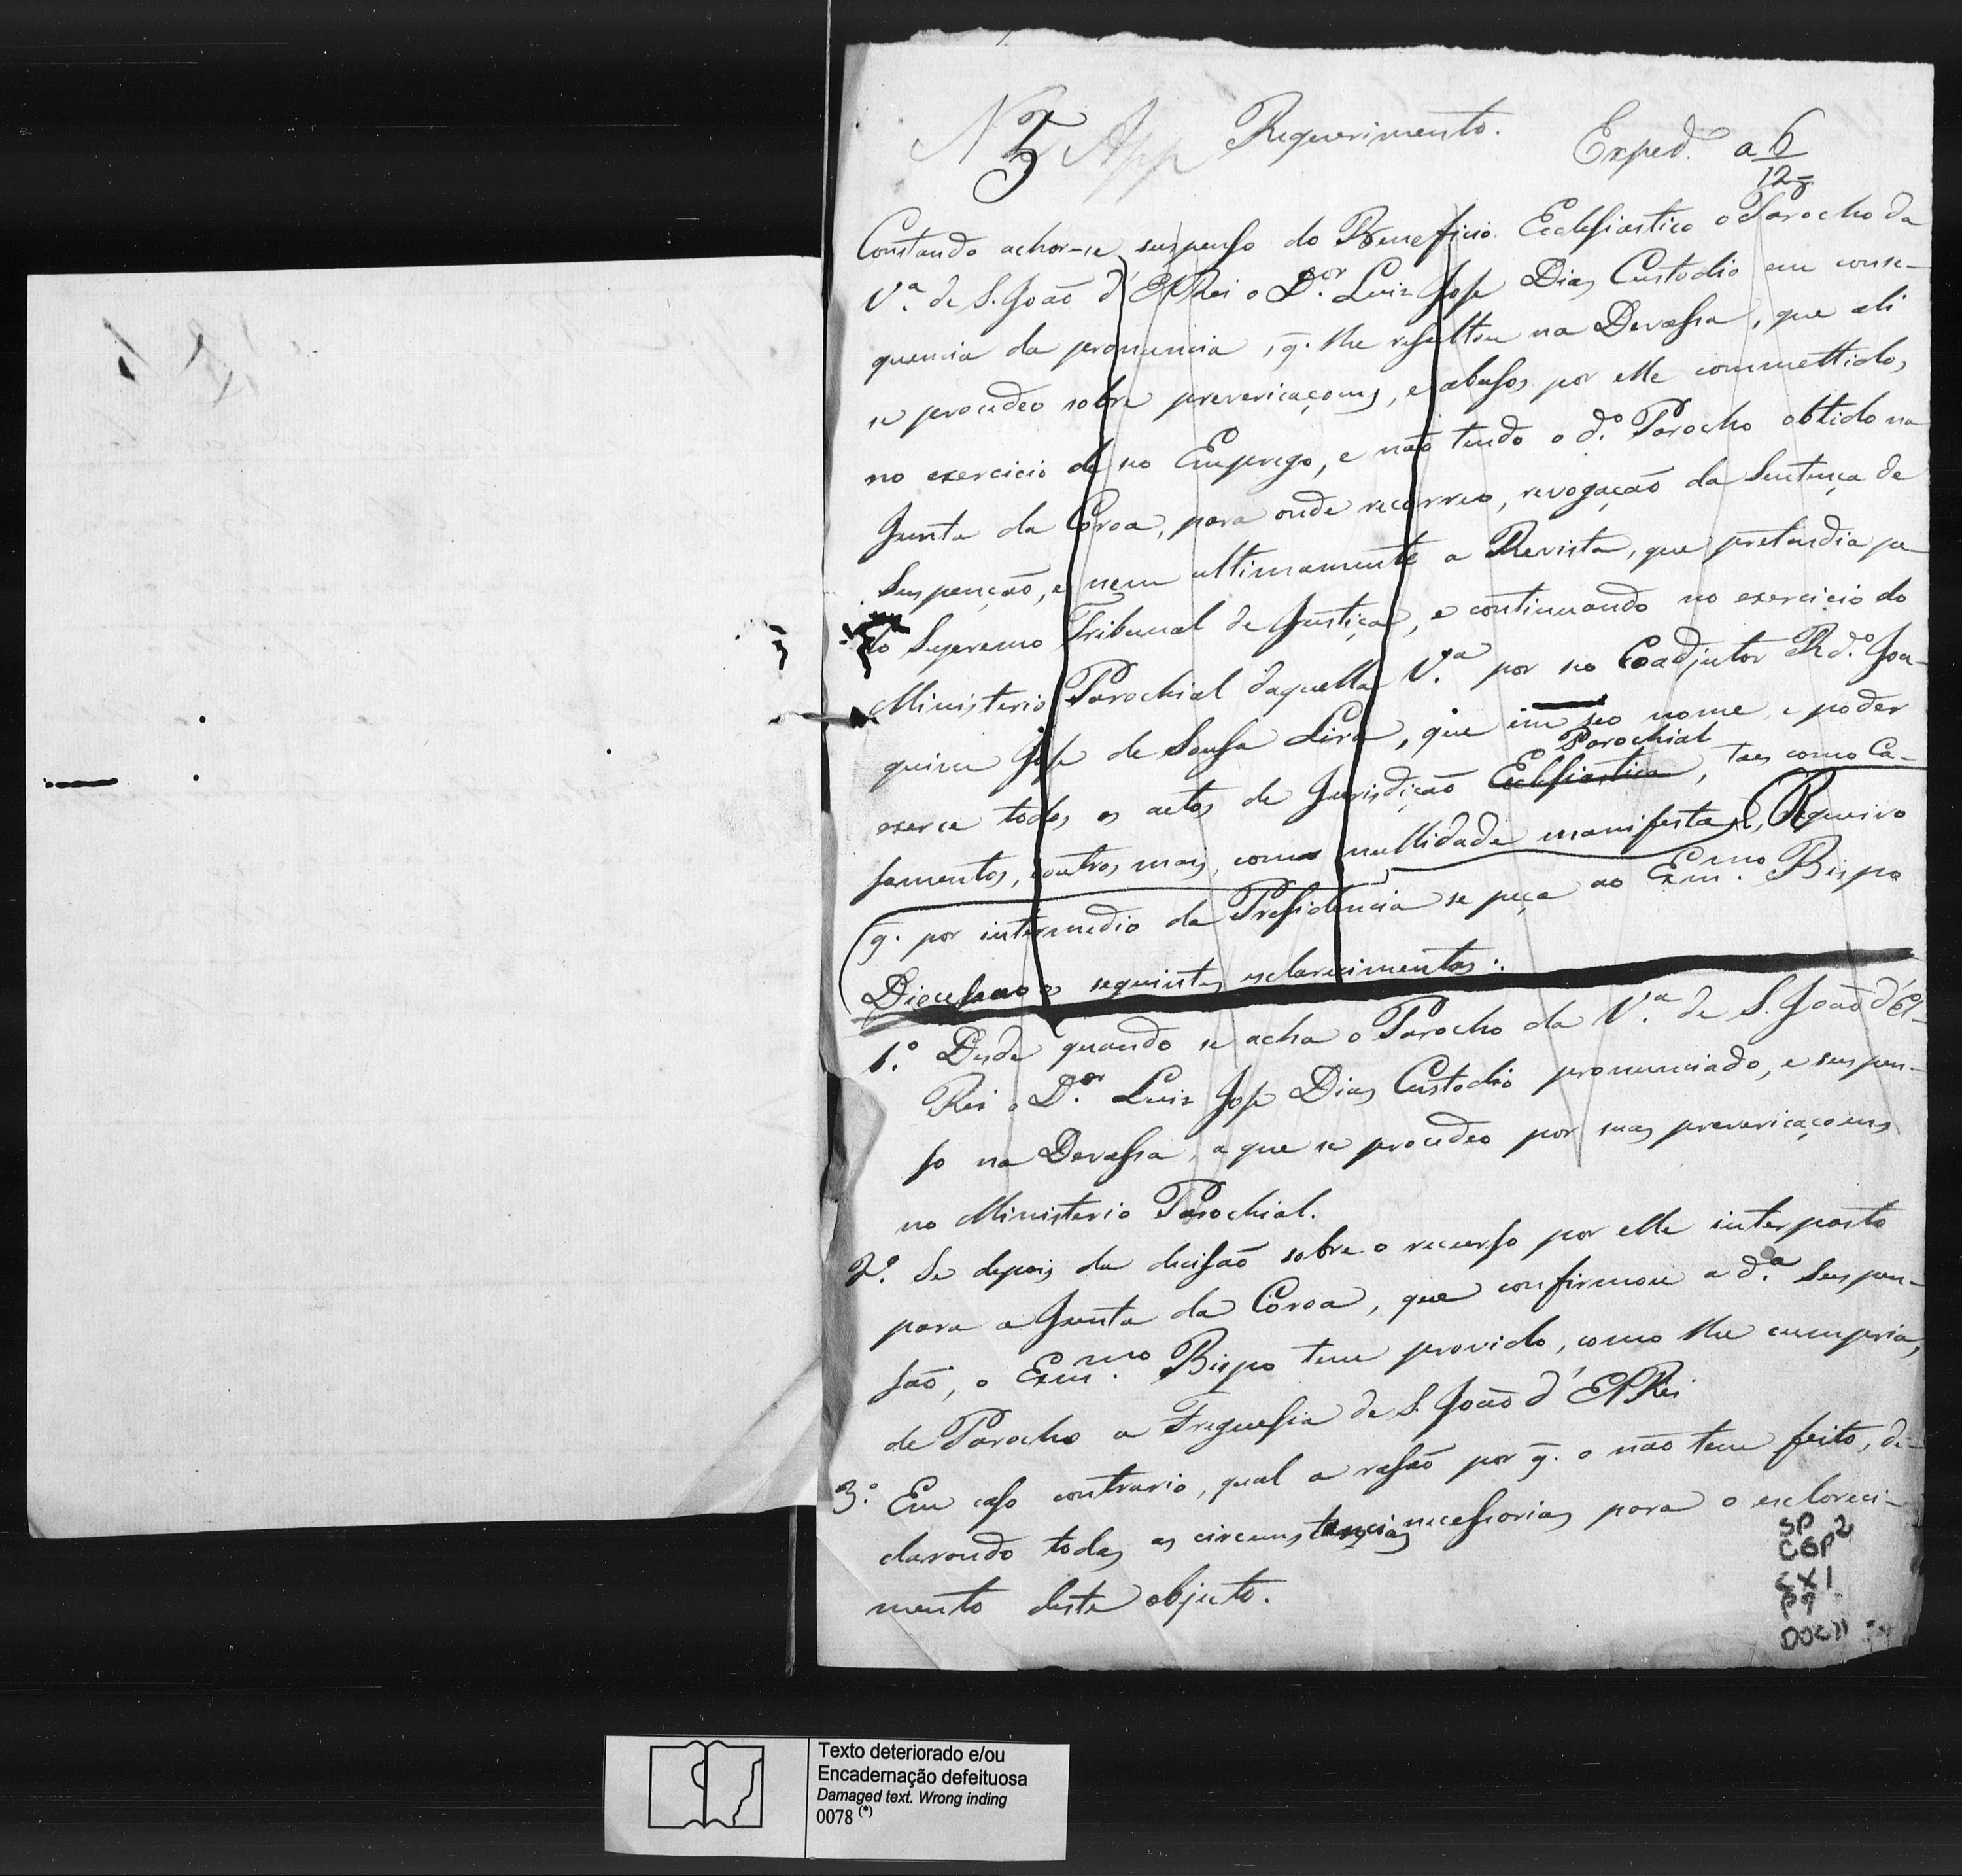 N 5 App Requerimento. Exped.º a 6
12
Constando achar-se suspenso do Beneficio Ecclesiastico o Parocho da
V.ª de S. João d'ElRei o D.or Luiz Jose Dias Custodio em conse-
quencia da pronuncia, q̃. lhe resultou na Devassa, que ali
se procedeo sobre prevericaçoens, e abusos por elle commettidos,
no exercicio de seo Emprego, e não tendo o d.º Parocho obtido na
Junta da Coroa, para onde recorreo, revogação da Sentença de
Suspenção, e nem ultimamente a Revista, que pretendia pe-
lo Supremo Tribunal de Justiça, e continuando no exercicio do
Ministerio Parochial daquella V.ª por seo Coadjutor Rd.º Joa-
quim Jose de Sousa Lira, que em seo nome, e poder
Parochial
exerce todos os actos de Jurisdição Ecclesiastica, taes como Ca-
samentos, e outros mais, com nullidade manifesta, Requeiro
q̃. por intermedio da Presidencia se peça ao Exm.mo Bispo
Diocesano os seguintes esclarecimentos:
1.º Desde quando se acha o Parocho da V.ª de S. João d'El-
Rei o D.or Luiz Jose Dias Custodio pronunciado, e suspen-
so na Devassa, a que se procedeo por suas prevericaçoens
no Ministerio Parochial.
2.º Se depois da decisão sobre o recurso por elle interposto
para a Junta da Coroa, que confirmou a d.ª Suspen-
são, o Exm.mo Bispo tem provido, como lhe cumpria,
de Parocho a Freguesia de S. João d'ElRei
3.º Em caso contrario, qual a rasão por q̃. o não tem feito, de-
clarando todas as circunstancias necessarias para o esclareci-
mento deste objecto.
SP
CGP2
CX1
P7
DOC11
Texto deteriorado e/ou
Encadernação defeituosa
Damaged text. Wrong inding
0078 (*)